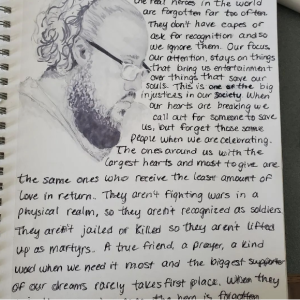 the real heroes in the world
are forgotten far too often.
They don't have capes or
ask for recognition and so
we ignore them. Our focus,
Our attention, stays on things
that bring us entertainment
over things that save our
souls. This is one of the big
injustices in our society. When
our hearts are breaking we
call out for someone to save
us, but forget those same
people when we are celebrating.
The ones around us with the
largest hearts and most to give are
the same ones who receive the least amount of
love in return. They aren't fighting wars in a
physical realm, so they aren't recognized as soldiers
They aren't jailed or killed so they aren't lifted
up as martyrs. A true friend, a prayer, a kind
word when we need it most and the biggest supporter
of our dreams rarely takes first place. When they
the hero is forgotten